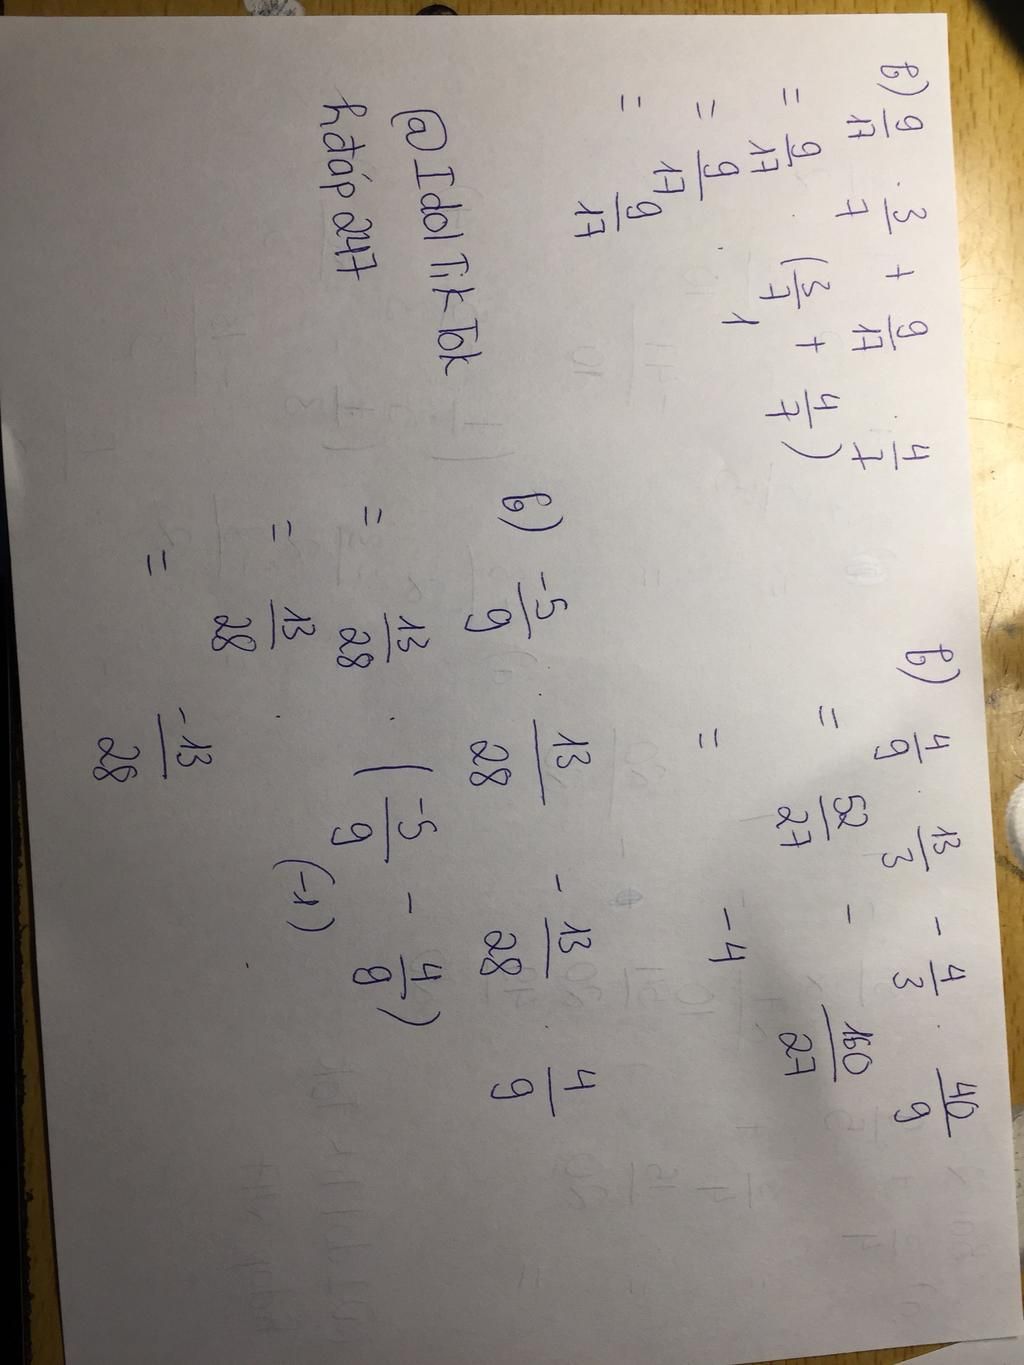 b) 9/17 . 3/7 + 9/17 . 4/7
= 9/17 . (3/7 + 4/7)
= 9/17 . 1
= 9/17
@Idol TikTok
hđáp 247
b) 4/9 . 13/3 - 4/3 . 40/9
= 52/27 - 160/27
= -4
b) -5/9 . 13/28 - 13/28 . 4/9
= 13/28 . (-5/9 - 4/9)
= 13/28 . (-1)
= -13/28